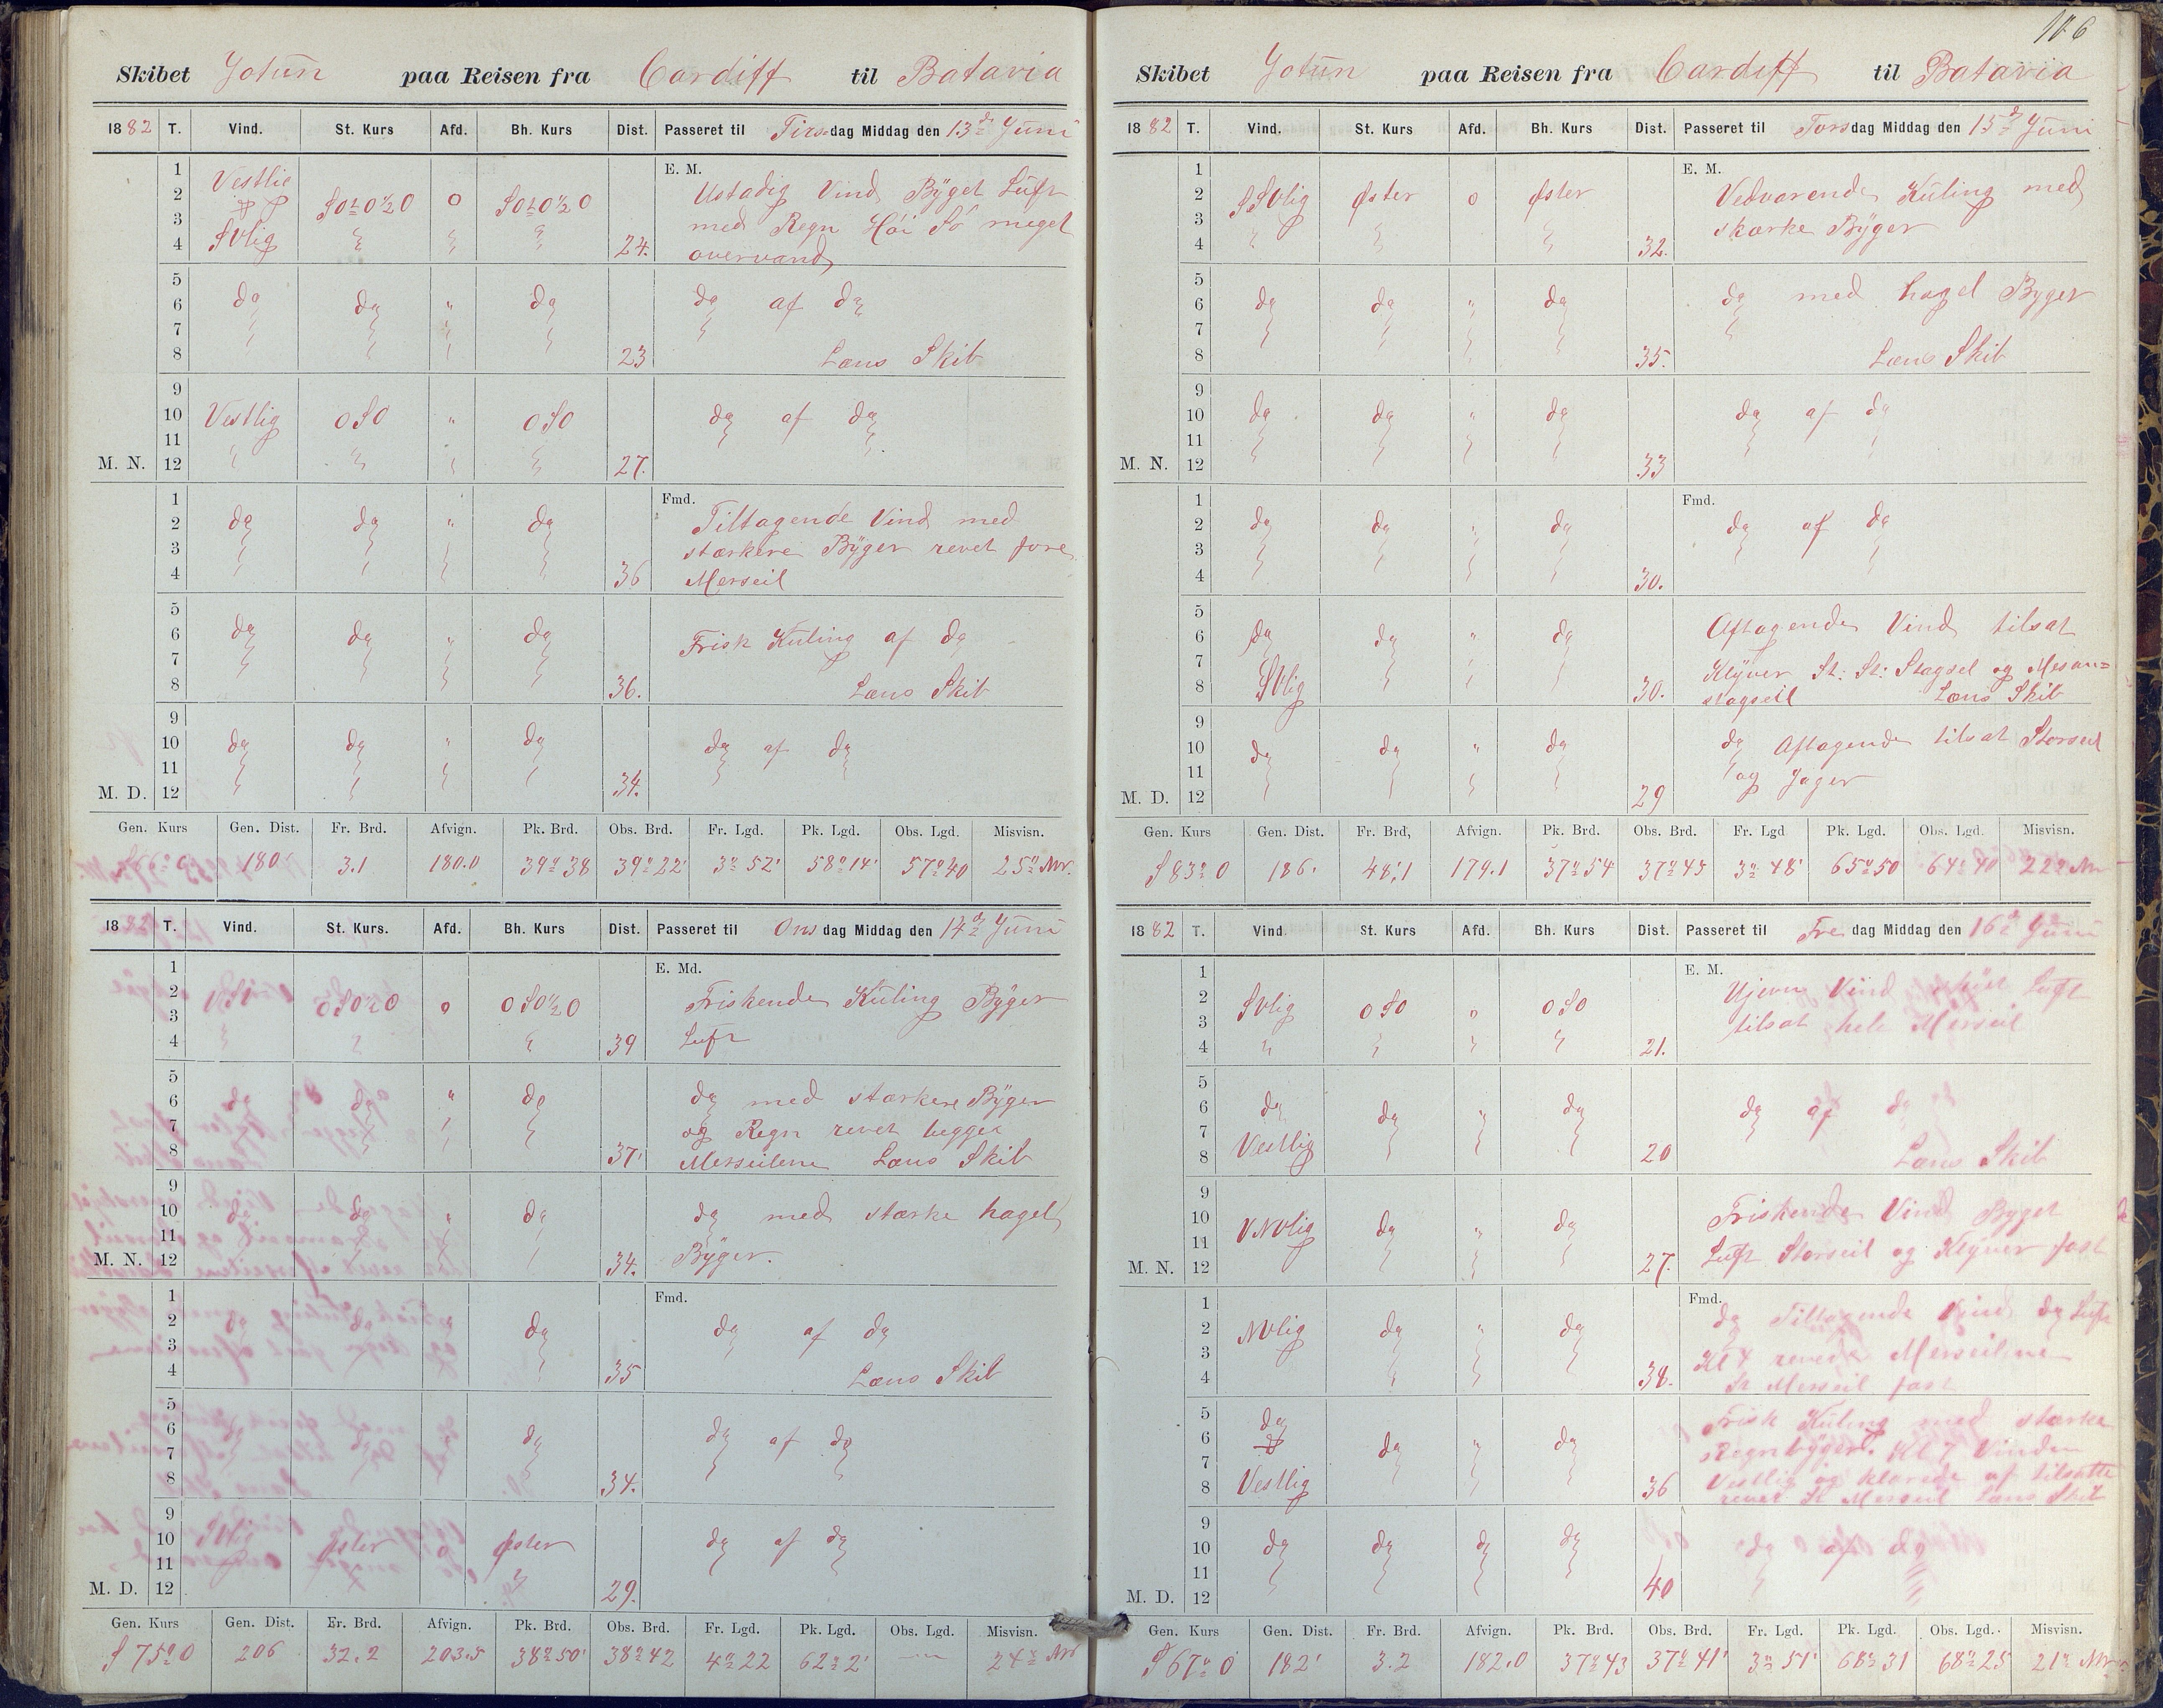 Skibet Jotun paa Reisen fra Cardiff til Batavia
1882 T. Vind. St. Kurs Afd. Bh. Kurs Dist. Passeret til Tirsdag Middag den 13de Juni
E. M.
1 Vestlig
2 SOtO½O O SOtO½O Ustadig Vind Byget Luft
3 med Regn Høi Sø meget
4 SVlig 24. overvand
5
6 do do " do do af do
7
8 23 Læns Skib
9
10 Vestlig OSO " OSO do af do
11
M. N. 12 27.
1 Fmd.
2 do do " do Tiltagende Vind med
3 stærkere Byger revet fore
4 36 Merseil
5
6 do do " do Frisk Kuling af do
7
8 36. Læns Skib
9
10 do do " do do af do
11
M. D. 12 34.
Gen. Kurs Gen. Dist. Fr. Brd. Afvign. Pk. Brd. Obs. Brd. Fr. Lgd. Pk. Lgd. Obs. Lgd. Misvisn.
180 3.1 180.0 39° 38 39° 22' 3° 52' 58° 14' 57° 40 25° NV.
1882 T. Vind. St. Kurs. Afd. Bh. Kurs Dist. Passeret til Onsdag Middag den 14de Juni
E. Md.
1
2 VSV OSO½O O OSO½O Friskende Kuling Byger
3
4 39 Luft
5
6 do do " do do med stærkere Byger
7 og Regn revet begge
8 37' Merseilene Læns Skib
9
10 do do " do do med stærke hagel
11
M. N. 12 34. Byger.
1 Fmd.
2 do do do do af do
3
4 35 Læns Skib
5
6 do do do do af do
7
8 34.
9
10 SVlig Øster Øster do af do
11
M. D. 12 29.
Gen. Kurs Gen. Dist. Fr. Brd. Afvign. Pk. Brd. Obs. Brd. Fr. Lgd. Pk. Lgd. Obs. Lgd. Misvisn.
S 75° O 206 32.2 203.5 38° 50' 38° 42 4° 22 62° 2' — 24° NV
106
Skibet Jotun paa Reisen fra Cardiff til Batavia
1882 T. Vind. St. Kurs Afd. Bh. Kurs Dist. Passeret til Torsdag Middag den 15de Juni
E. M.
1
2 SSVlig Øster O Øster Vedvarende Kuling med
3 stærke Byger
4 32.
5
6 do do " do do med hagel Byger
7
8 35. Læns Skib
9
10 do do " do do af do
11
M. N. 12 33
1 Fmd.
2 do do " do do af do
3
4 30.
5
6 do do " do Aftagende Vind tilsat
7 Klyver St: St: Stagsel og Mesan=
8 SVlig 30. stagseil Læns Skib
9
10 do do " do do Aftagende tilsat Storseil
11 og Jager
M. D. 12 29
Gen. Kurs Gen. Dist. Fr. Brd, Afvign. Pk. Brd. Obs. Brd. Fr. Lgd Pk. Lgd. Obs. Lgd. Misvisn.
S 83° O 186. 48.1 179.1 37° 54 37° 45 3° 48' 65° 50 64° 40 22° NV
1882 T. Vind. St. Kurs Afd. Bh. Kurs Dist. Passeret til Fredag Middag den 16de Juni
E. M.
1
2 SVlig OSO " OSO Ujevn Vind skyet Luft
3 tilsat hele Merseil
4 21.
5
6 do do " do do af do
7
8 Vestlig 20 Læns Skib
9
10 VNVlig do " do Friskende Vind Byget
11 Luft Storseil og Klyver fast
M. N. 12 27.
1 Fmd.
2 NVlig do " do do Tiltagende Vind do Luft
3 Kl 4 revede Merseilene
4 38. St Merseil fast
5 do
6 do " do Frisk Kuling med stærke
7 Regnbyger. Kl 7 Vinden
8 Vestlig 36 Vestlig og klarede af tilsatte
revet St Merseil Læns Skib
9
10 do do do do do af do
11
M. D. 12 40
Gen. Kurs Gen. Dist. Fr. Brd. Afvign. Pk. Brd. Obs. Brd. Fr. Lgd. Pk. Lgd. Obs. Lgd. Misvisn.
S 67° O 182' 3.2 182.0 37° 43 37° 41' 3° 51' 68° 31 68° 25 21° NV